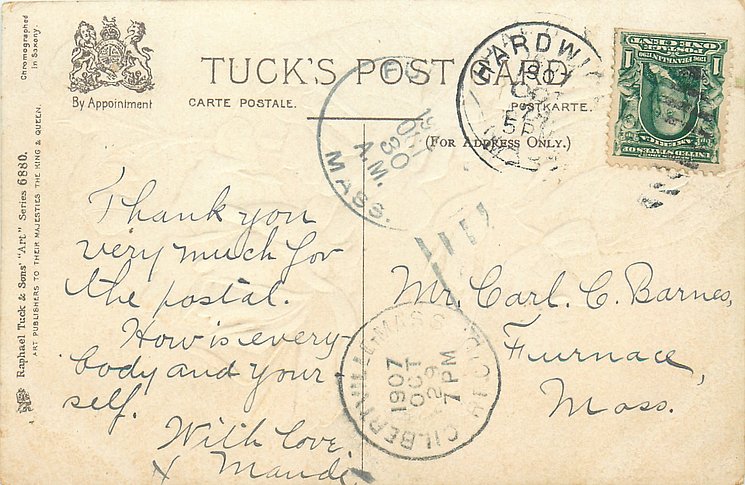 Chromographed
in Saxony.
Raphael Tuck & Sons' "Art" Series 6880.
ART PUBLISHERS TO THEIR MAJESTIES THE KING & QUEEN.
By Appointment
TUCK'S POST CARD
CARTE POSTALE.
POSTKARTE.
(For Address Only.)
HARDWI
OCT
5 P
MASS
FU
OCT
30
A.M.
MASS.
Thank you
very much for
the postal.
How is every-
body and your-
self.
With love
x Maudi
GILBERTVILLE MASS
1907
OCT
29
7 PM
Mr. Carl. C. Barnes,
Furnace,
Mass.
1
1